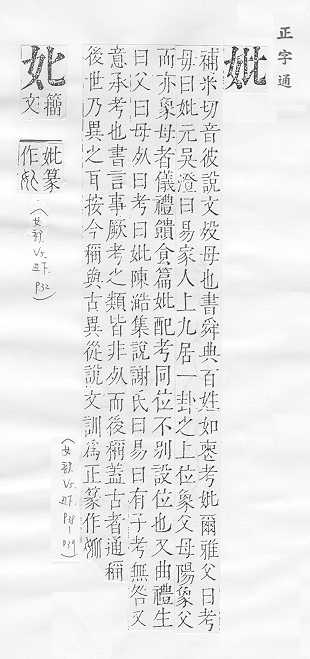 正字通
妣
補米切音彼說文歿母也書舜典百姓如喪考妣爾雅父曰考
母曰妣元吳澄曰易家人上九居一卦之上位象父母陽象父
而亦象母者儀禮饋食篇妣配考同位不別設位也又曲禮生
曰父曰母死曰考曰妣陳澔集說謝氏曰易曰有子考無咎又
意承考也書言事厥考之類皆非死而後稱蓋古者通稱
後世乃異之耳按今稱與古異從說文訓爲正篆作
(女部 Vs. 丑下. P38-P39)
籀文
妣篆作
(女部 Vs. 丑下. P32)